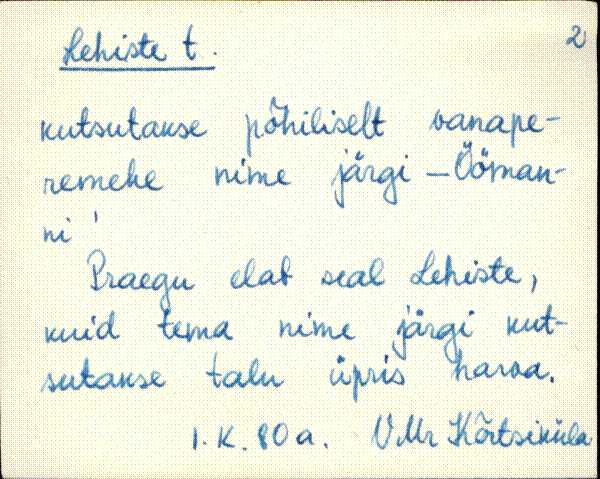 2
Lehiste t.
kutsutakse põhiliselt vanape-
remehe nime järgi — Ööman-
ni'
Praegu elab seal Lehiste,
kuid tema nime järgi kut-
sutakse talu üpris harva.
I. K. 80 a. VMr Kõrtsiküla